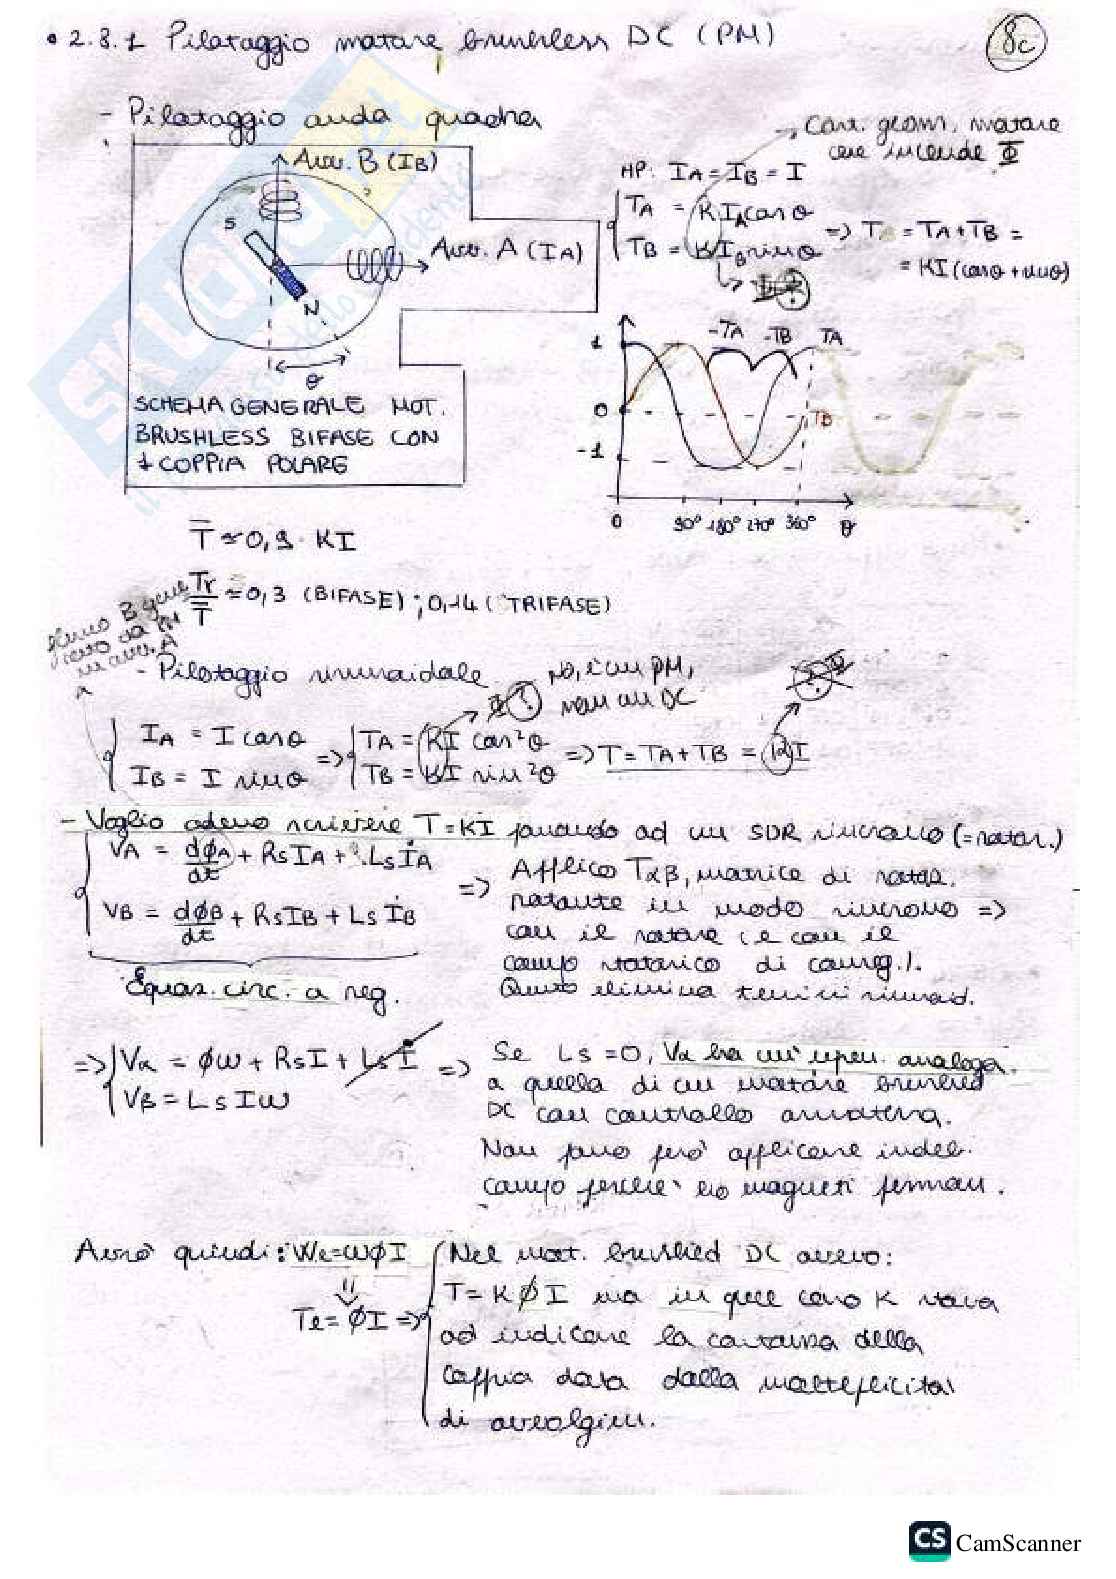 • 2.3.1 Pilotaggio motore brushless DC (PM)
8c
- Pilotaggio onda quadra
Avv. B (IB)
S
Avv. A (IA)
N
θ
SCHEMA GENERALE MOT.
BRUSHLESS BIFASE CON
1 COPPIA POLARE
→ Cost. geom. motore
che include Φ
HP: IA = IB = I
TA = KIA cosθ
TB = KIB sinθ
=> T = TA + TB =
= KI (cosθ + sinθ)
-TA -TB TA
1
0
TB
-1
0 90° 180° 270° 360° θ
T̅ ≈ 0,9 · KI
Tr/T̅ ≈ 0,3 (BIFASE) ; 0,14 (TRIFASE)
flusso B gene
rato da PM
in avv. A
- Pilotaggio sinusoidale
no, è con PM,
non con DC
IA = I cosθ
IB = I sinθ
=> TA = KI cos²θ
TB = KI sin²θ
=> T = TA + TB = KI
- Voglio adesso scrivere T = KI passando ad un SDR sincrono (= rotor.)
VA = dϕA/dt + RsIA + Ls İA
VB = dϕB/dt + RsIB + Ls İB
Equaz. circ. a reg.
=> Applico Tαβ, matrice di rotaz.
rotante in modo sincrono =>
con il rotore (e con il
campo statorico di conseg.).
Questo elimina termini sinusoid.
=> Vα = ϕω + RsI + Ls İ
VB = Ls I ω
=> Se Ls = 0, Vα ha un'espr. analoga
a quella di un motore brushed
DC con controllo armatura.
Non posso però applicare indeb.
campo perché ho magneti perman.
Avrò quindi: We = ωϕI
Te = ϕI =>
Nel mot. brushed DC avevo:
T = K ϕ I ma in quel caso K stava
ad indicare la costanza della
coppia data dalla molteplicità
di avvolgim.
CS CamScanner